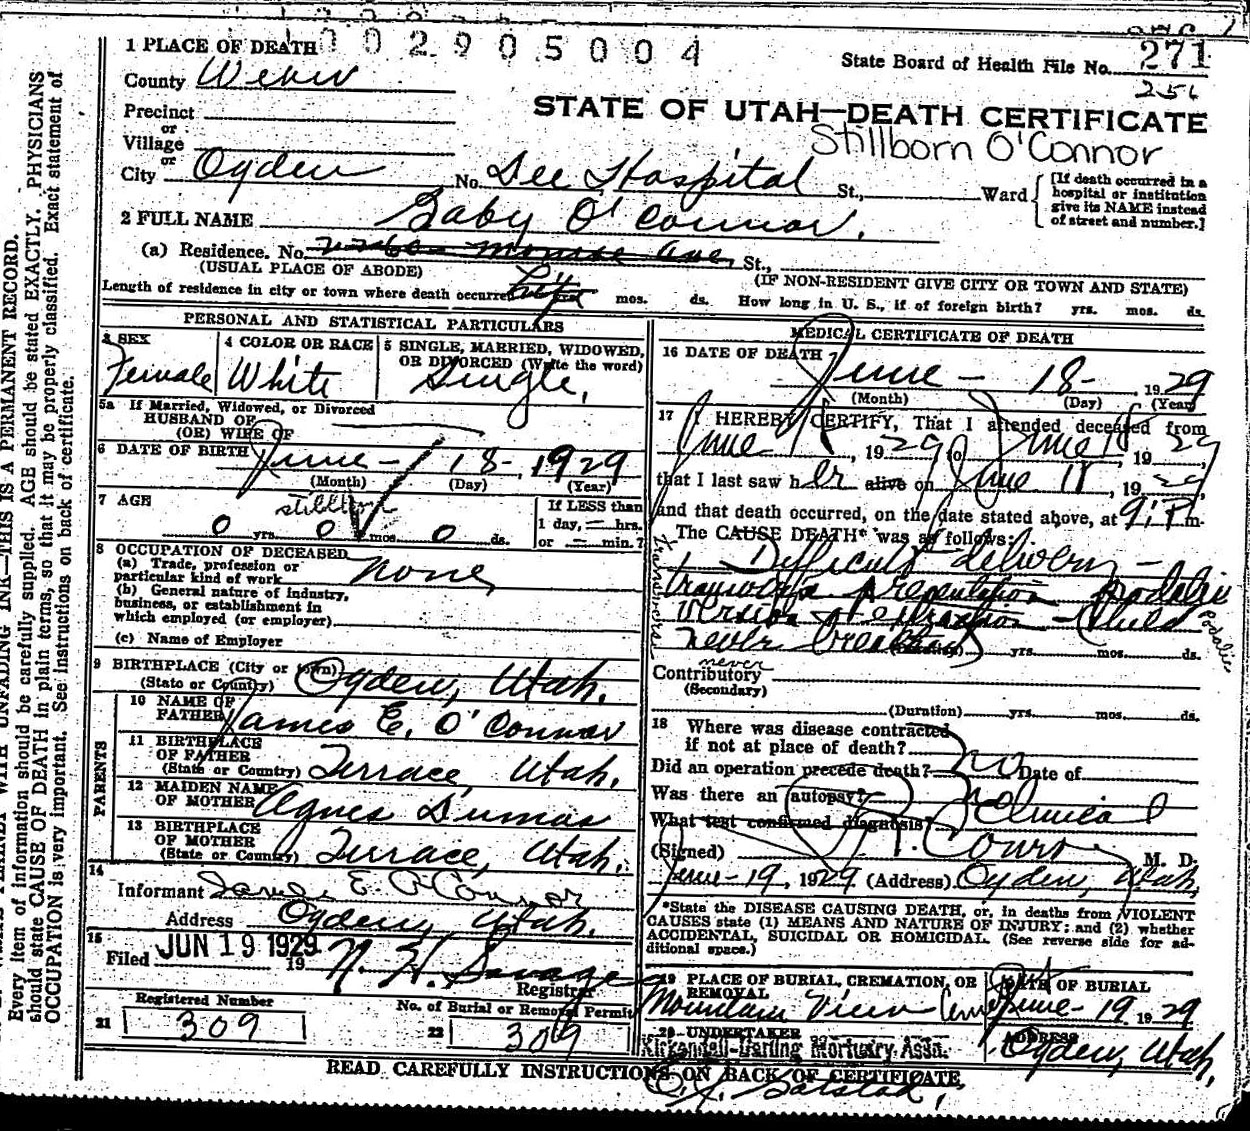 1 0 0 2 9 0 5 0 0 4
1 PLACE OF DEATH
State Board of Health File No. 271
County Weber
256
STATE OF UTAH—DEATH CERTIFICATE
Precinct
or
Village
or
Stillborn O'Connor
City Ogden No. Dee Hospital St., Ward
[If death occurred in a hospital or institution give its NAME instead of street and number.]
2 FULL NAME Baby O'Connor.
(a) Residence. No. Monroe Ave, St.,
(USUAL PLACE OF ABODE)
(IF NON-RESIDENT GIVE CITY OR TOWN AND STATE)
Length of residence in city or town where death occurred mos. ds. How long in U. S., if of foreign birth? yrs. mos. ds.
PERSONAL AND STATISTICAL PARTICULARS
3 SEX Female
4 COLOR OR RACE White
5 SINGLE, MARRIED, WIDOWED, OR DIVORCED (Write the word) Single,
5a If Married, Widowed, or Divorced
HUSBAND OF
(OR) WIFE OF
6 DATE OF BIRTH June - 18-, 1929
(Month) (Day) (Year)
7 AGE stillborn
0 yrs. 0 mos. 0 ds.
If LESS than
1 day, — hrs.
or — min.?
8 OCCUPATION OF DECEASED
(a) Trade, profession or
particular kind of work none
(b) General nature of industry,
business, or establishment in
which employed (or employer)
(c) Name of Employer
9 BIRTHPLACE (City or town)
(State or Country) Ogden, Utah.
PARENTS
10 NAME OF
FATHER James E. O'Connor
11 BIRTHPLACE
OF FATHER
(State or Country) Terrace, Utah.
12 MAIDEN NAME
OF MOTHER Agnes Dumas
13 BIRTHPLACE
OF MOTHER
(State or Country) Terrace, Utah.
14
Informant James E O'Connor
Address Ogden, Utah.
15
Filed JUN 19 1929 19 N. H. Savage
Registrar
Registered Number
21 309
No. of Burial or Removal Permit
22 309
MEDICAL CERTIFICATE OF DEATH
16 DATE OF DEATH
June - 18-, 1929
(Month) (Day) (Year)
17 I HEREBY CERTIFY, That I attended deceased from
June 18, 1929 to June 18 1929,
that I last saw her alive on June 18, 1929,
and that death occurred, on the date stated above, at 9 P. m.
The CAUSE DEATH* was as follows:
Difficult delivery -
Transverse presentation podalic
version & extraction - Child
never breathed yrs. mos. ds.
Transverse
Podalic
never
Contributory
(Secondary)
(Duration) yrs. mos. ds.
18 Where was disease contracted
if not at place of death?
Did an operation precede death? no Date of
Was there an autopsy?
What test confirmed diagnosis? Clinical
(Signed) Conroy M. D.
June-19, 1929 (Address) Ogden, Utah,
*State the DISEASE CAUSING DEATH, or, in deaths from VIOLENT
CAUSES state (1) MEANS AND NATURE OF INJURY; and (2) whether
ACCIDENTAL, SUICIDAL OR HOMICIDAL. (See reverse side for ad-
ditional space.)
19 PLACE OF BURIAL, CREMATION, OR
REMOVAL
Mountain View Cem
DATE OF BURIAL
June-19 1929
20 UNDERTAKER
Kirkendall-Darling Mortuary Assn.
ADDRESS
Ogden, Utah,
READ CAREFULLY INSTRUCTIONS ON BACK OF CERTIFICATE
WITH UNFADING INK—THIS IS A PERMANENT RECORD.
Every item of information should be carefully supplied. AGE should be stated EXACTLY. PHYSICIANS
should state CAUSE OF DEATH in plain terms, so that it may be properly classified. Exact statement of
OCCUPATION is very important. See instructions on back of certificate.